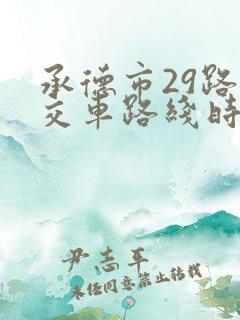 承德市29路
交车路线时
尹志平
未经同意禁止转载